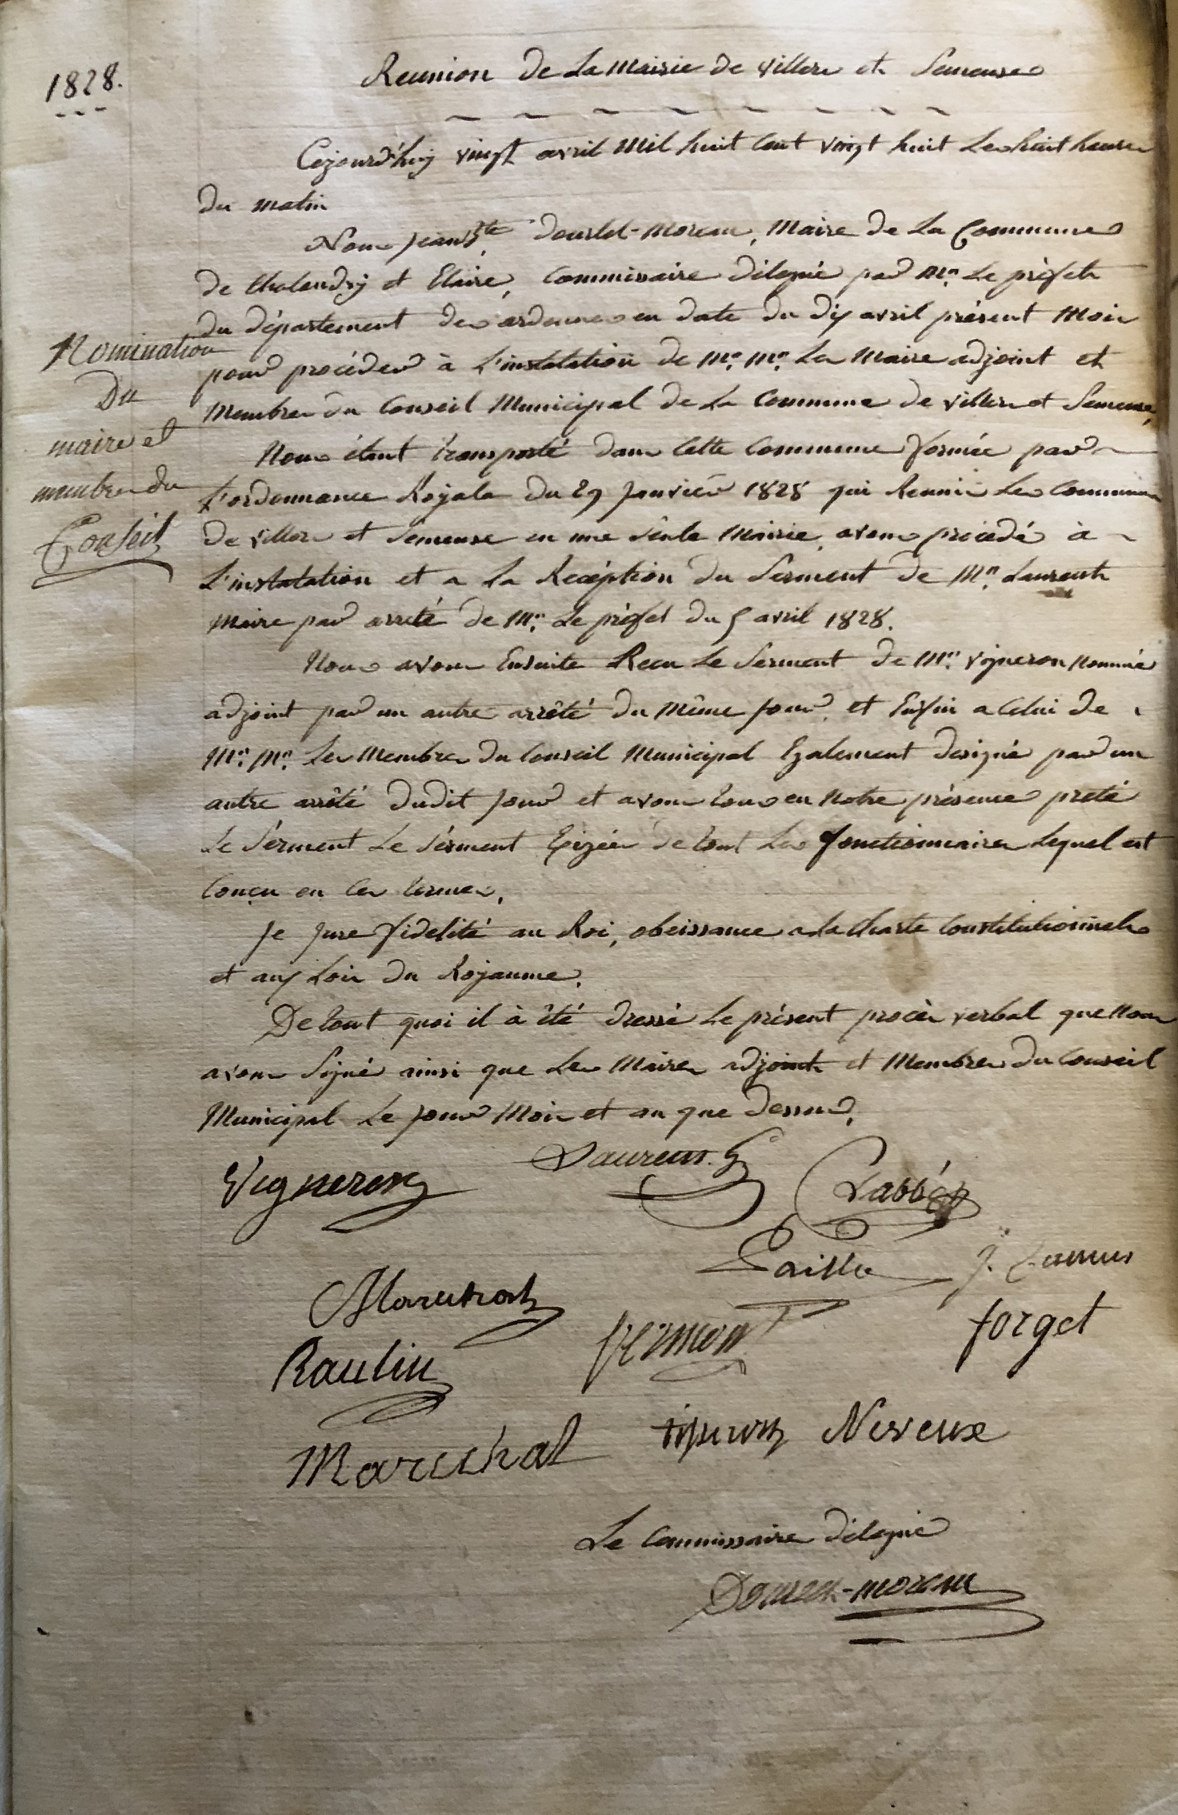 1828.
Reunion de La Mairie de Villers et Semeuse
Cejourd'huy vingt avril Mil huit Cent vingt huit Les huit heures
du matin
Nous jean Bte Dourlet-Moreau, Maire de La Commune
de Chalandry et Elaire, Commissaire délégué par Mr. Le préfet
du département des ardennes en date du dix avril présent Mois
pour procéder à L'instalation de Mr. Mr. Les Maire adjoint et
Membres du Conseil Municipal de La Commune de Villers et Semeuse,
Nomination
Du
maire et
membres du
Conseil
Nous étant transporté dans Cette Commune formée par
L'ordonnance Royale du 29 Janvier 1828 qui Reunie Les Communes
de Villers et Semeuse en une Seule Mairie, avons procédé à
L'instalation et a La Reception du Serment de Mr. Laurent
Maire par arrêté de Mr. Le préfet du 5 avril 1828.
Nous avons Ensuite Recu Le Serment de Mr. Vigneron Nommé
adjoint par un autre arrêté du Même jour, et Enfin a Celui de
Mr. Mr. Les Membres du Conseil Municipal Egalement designé par un
autre arrêté dudit jour et avons tous en Notre présence preté
Le Serment Le Serment Exigée de tout Les fonctionnaires Lequel est
Conçu en Ces termes,
Je Jure fidelité au Roi, obeissance a La Charte Constitutionnelle
et aux Lois du Royaume,
De tout quoi il à été dressé Le présent procès verbal que Nous
avons Signé ainsi que Les Maire adjoint et Membres du Conseil
Municipal Le jour Mois et an que dessus,
Vigneron Laurent Labbé
Paille J. Camus
Marechal
Raulin fremont forget
Marechal Neveux
Le Commissaire délégué
Dourlet-moreau